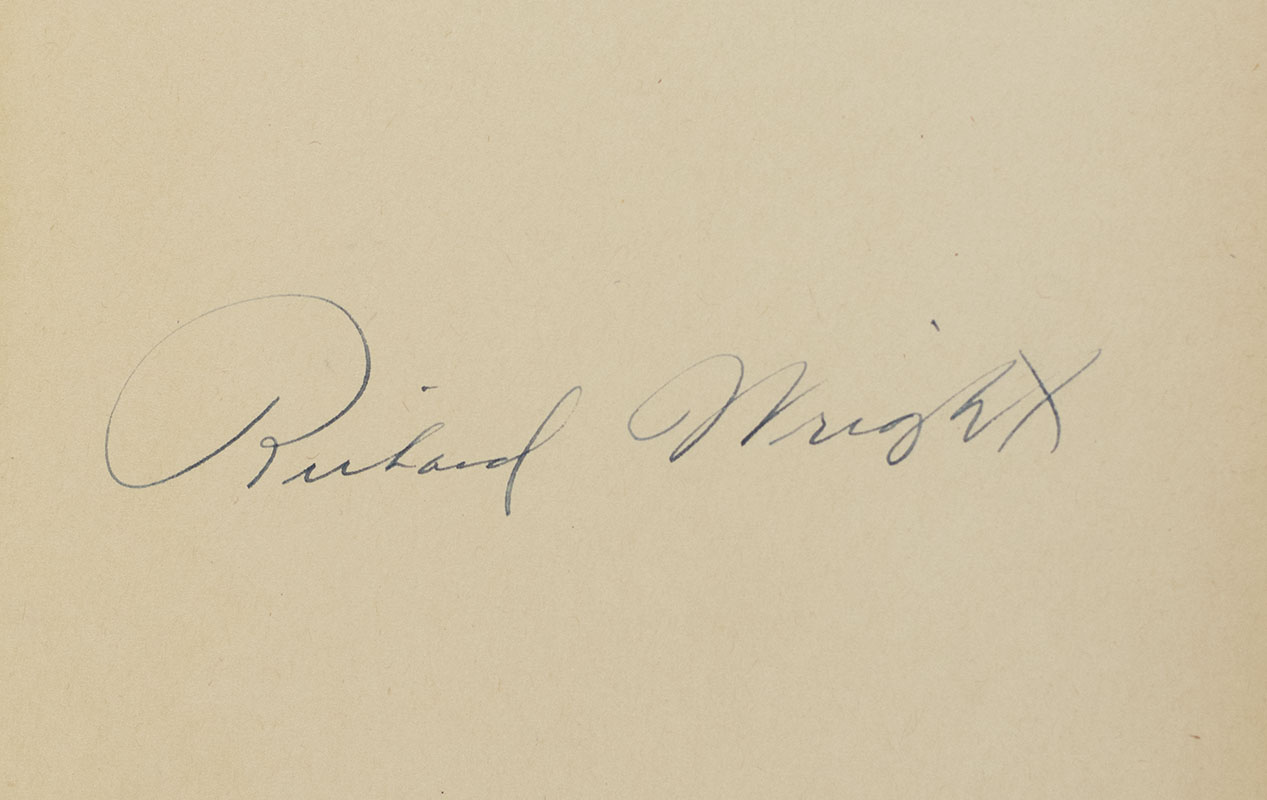 Richard Wright